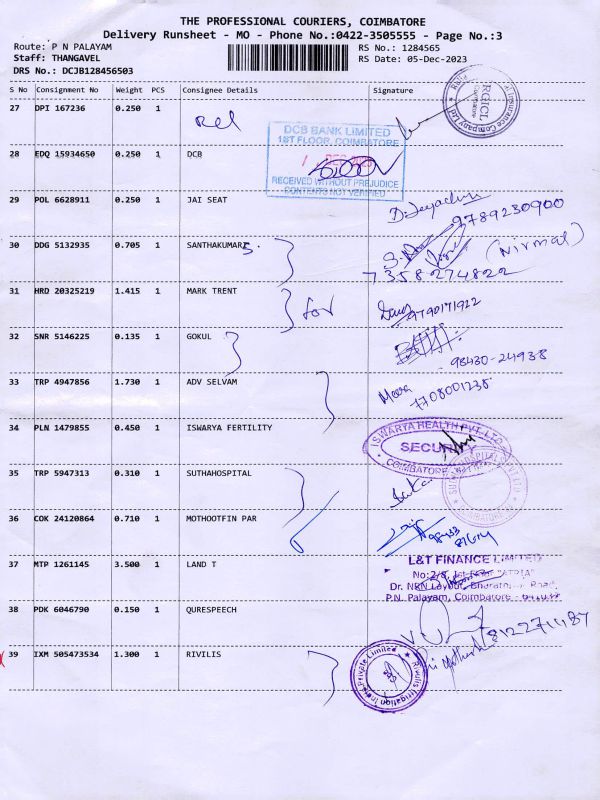 THE PROFESSIONAL COURIERS, COIMBATORE
Delivery Runsheet - MO - Phone No.:0422-3505555 - Page No.:3
Route: P N PALAYAM
RS No.: 1284565
Staff: THANGAVEL
RS Date: 05-Dec-2023
DRS No.: DCJB128456503
S No Consignment No Weight PCS Consignee Details Signature
27 DPI 167236 0.250 1
RGICL
DCB BANK LIMITED
1ST FLOOR, COIMBATORE
28 EDQ 15934650 0.250 1 DCB
RECEIVED WITHOUT PREJUDICE
CONTENTS NOT VERIFIED
29 POL 6628911 0.250 1 JAI SEAT
9789230900
30 DDG 5132935 0.705 1 SANTHAKUMARS.
(Nirmal)
7358274822
31 HRD 20325219 1.415 1 MARK TRENT
for
9790171922
32 SNR 5146225 0.135 1 GOKUL
98430-24938
33 TRP 4947856 1.730 1 ADV SELVAM
7708001238
34 PLN 1479855 0.450 1 ISWARYA FERTILITY
ISWARYA HEALTH PVT LTD
COIMBATORE
35 TRP 5947313 0.310 1 SUTHAHOSPITAL
36 COK 24120864 0.710 1 MOTHOOTFIN PAR
37 MTP 1261145 3.500 1 LAND T
L&T FINANCE LIMITED
No:2/8, 1st Floor "ATRIA"
Dr. NRN Layout, Bharathiyar Road,
P.N. Palayam, Coimbatore
38 PDK 6046790 0.150 1 QURESPEECH
39 IXM 505473534 1.300 1 RIVILIS
Rivulis Irrigation India Private Limited